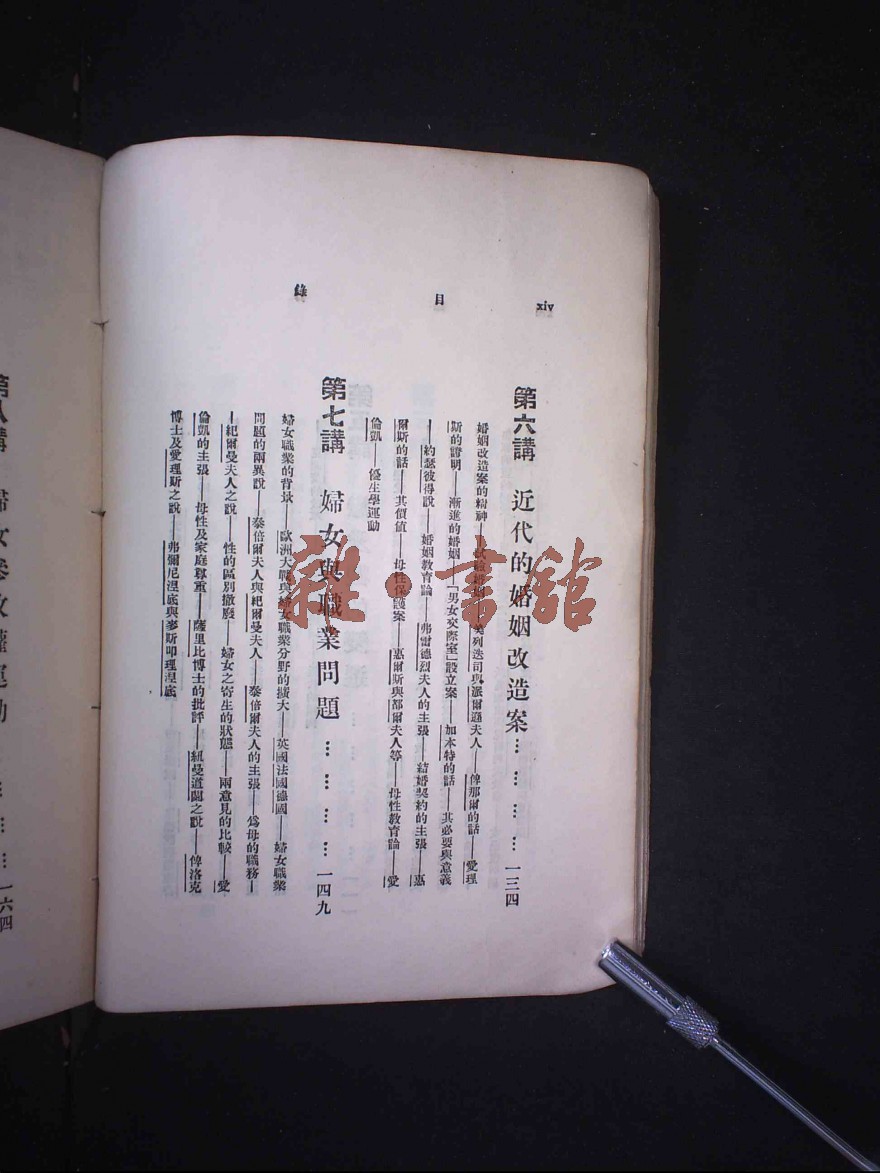 xiv
目
錄
第六講 近代的婚姻改造案………… 一三四
婚姻改造案的精神——試驗婚姻——美列迭司與派爾遜夫人——俾那爾的話——愛理
斯的證明——漸進的婚姻——「男女交際室」設立案——加本特的話——其必要與意義
——約瑟彼得說——婚姻教育論——弗雷德烈夫人的主張——結婚契約的主張——惠
爾斯的話——其價值——母性保護案——惠爾斯與都爾夫人等——母性教育論——愛
倫凱——優生學運動
第七講 婦女與職業問題………… 一四九
婦女職業的背景——歐洲大戰與婦女職業分野的擴大——英國法國德國——婦女職業
問題的兩異說——泰倍爾夫人與紀爾曼夫人——泰倍爾夫人的主張——為母的職務—
—紀爾曼夫人之說——性的區別撤廢——婦女之寄生的狀態——兩意見的比較——愛
倫凱的主張——母性及家庭尊重——薩里比博士的批評——紐曼道蘭之說——俾洛克
博士及愛理斯之說——弗爾尼涅底與麥斯叩理涅底
第八講 婦女參政權運動………… 一六四
雜·書館